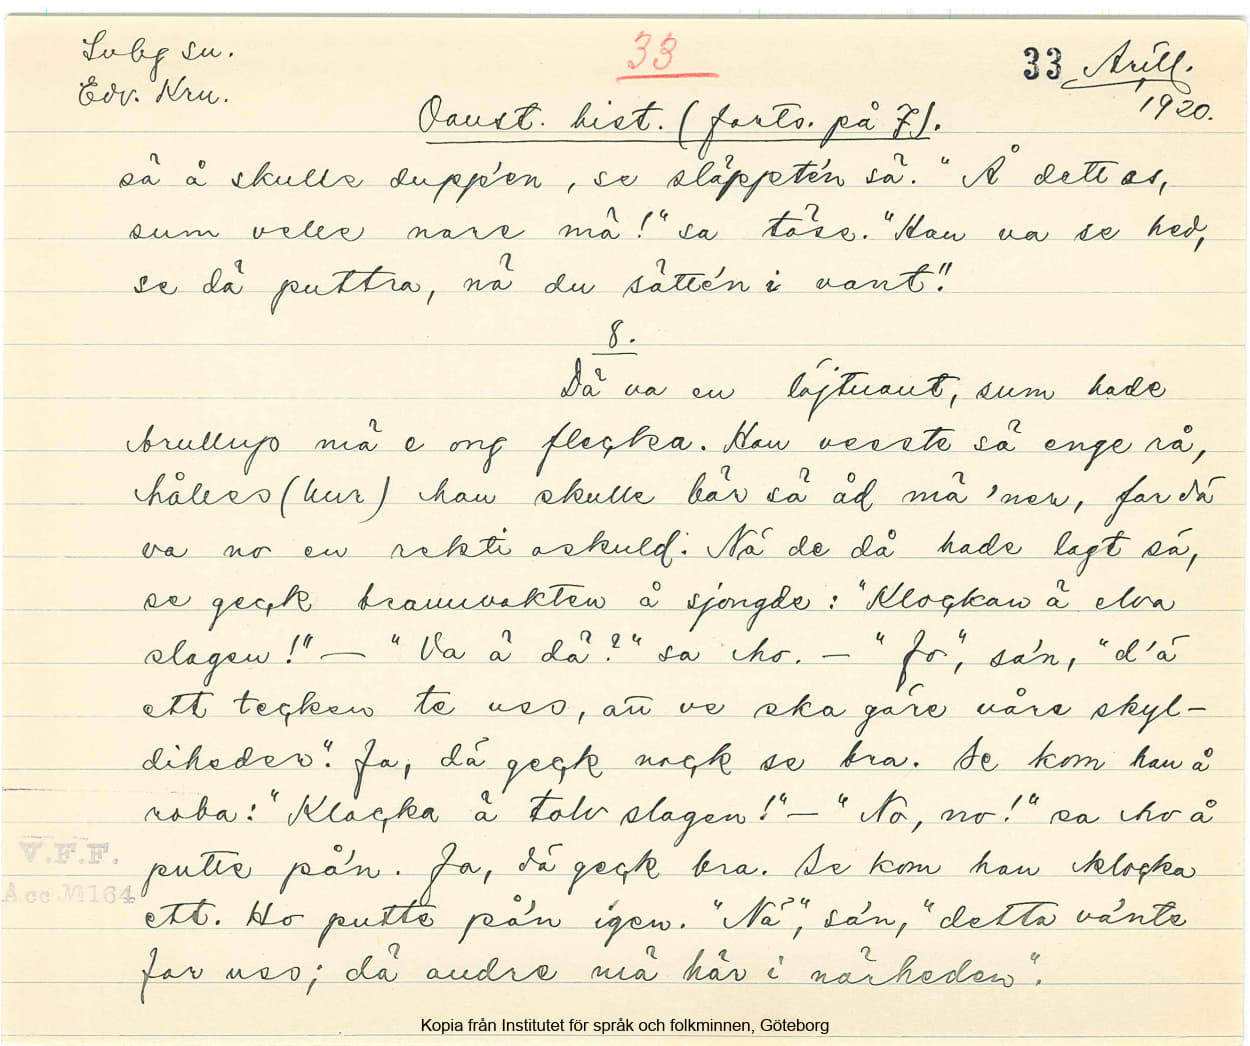 Svbg sn.
Edv. Krn.
33
33 Arill.
1920.
Oanst. hist. (forts. på 7).
så å skulle dupp'en, se släppte'n så." Å dett as,
sum velle nare mä!" sa töse. "Han va se hed,
se dä puttra, nä du sätte'n i vant".
8.
Dä va en löjtnant, sum hade
brullup mä e ong fleçka. Han vesste sä enge rå,
håles (hur) han skulle bär sä åd mä 'ner, for dä
va no en rekti oskuld. Nä de då hade lagt sä,
se geçk brannvakten å sjongde: "Kloçkan ä elva
slagen!" — "Va ä dä?" sa ho. — "Jo", sa'n, "d'ä
ett teçken te uss, att ve ska göre våre skyl-
diheder". Ja, dä geçk noçk se bra. Se kom han å
roba: "Kloçka ä tolv slagen!" — "No, no!" sa ho å
putte på'n. Ja, dä geçk bra. Se kom han kloçka
ett. Ho putte på'n igen. "Nä", sa'n, "detta vänte
for uss; dä andre mä här i närheden".
V.F.F.
Acc. № 164
Kopia från Institutet för språk och folkminnen, Göteborg